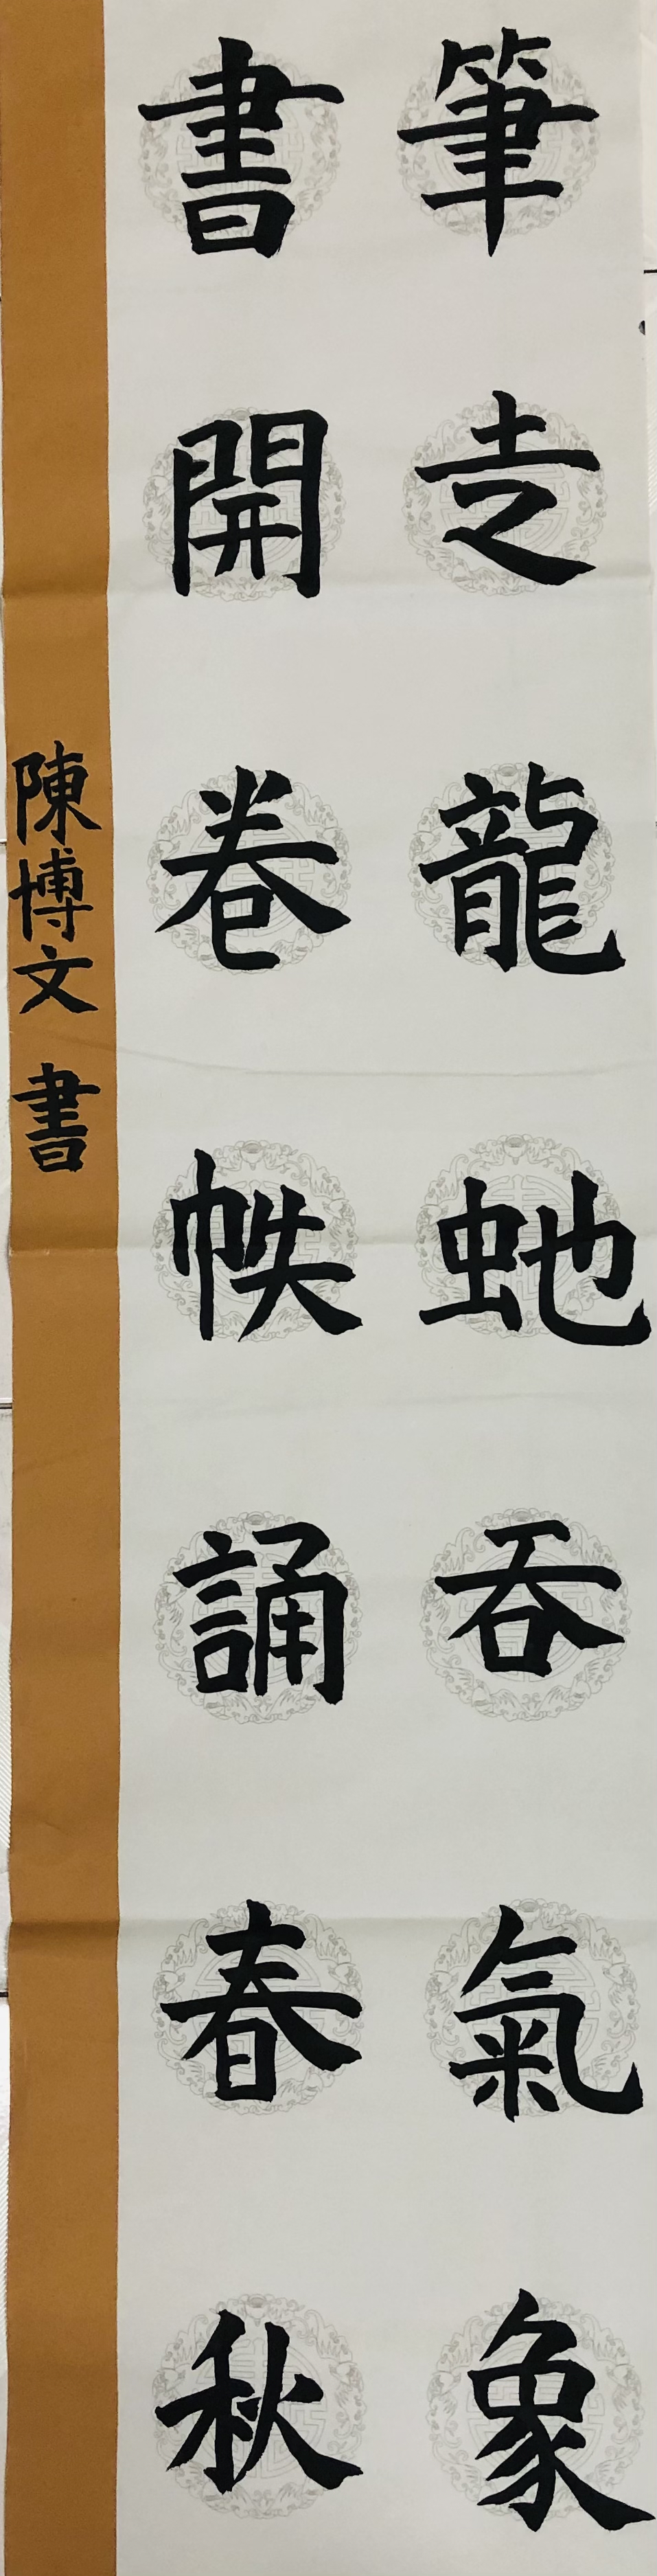 筆走龍虵吞氣象
書開卷帙誦春秋
陳博文 書